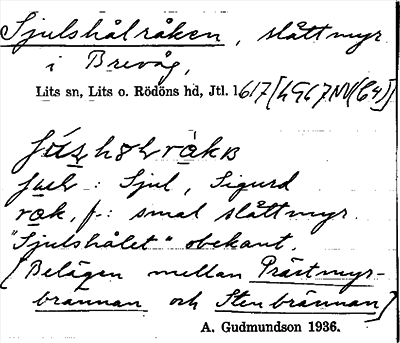 Sjulshålråken, slåttmyr
i Brevåg,
Lits sn, Lits o. Rödöns hd, Jtl. 1617[h967NV(E4)]
hǫḷ råkɴ
: Sjul, Sigurd
råk, f.: smal slåttmyr.
"Sjulshålet" obekant.
[Belägen mellan Prästmyr-
brännan och Stenbrännan]
A. Gudmundson 1936.